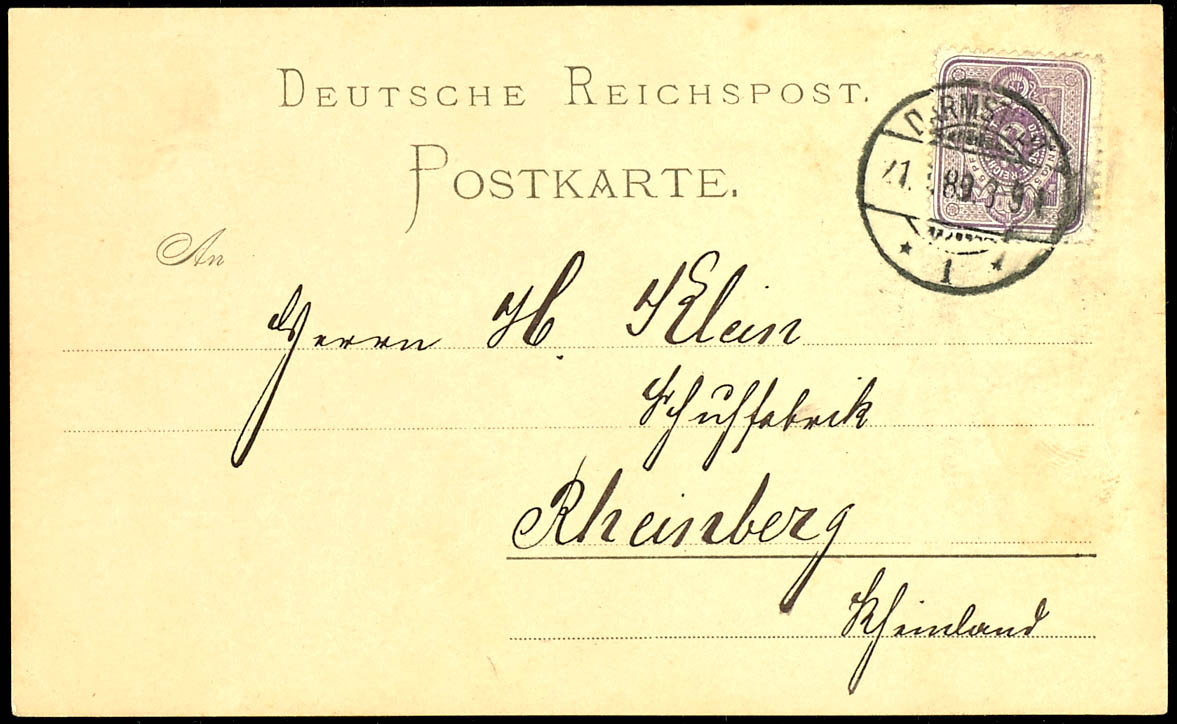 DEUTSCHE REICHSPOST.
POSTKARTE.
An
Herrn H. Klein
Schuhfabrik
Rheinberg
Rheinland
DARMSTADT
89
* 1 *